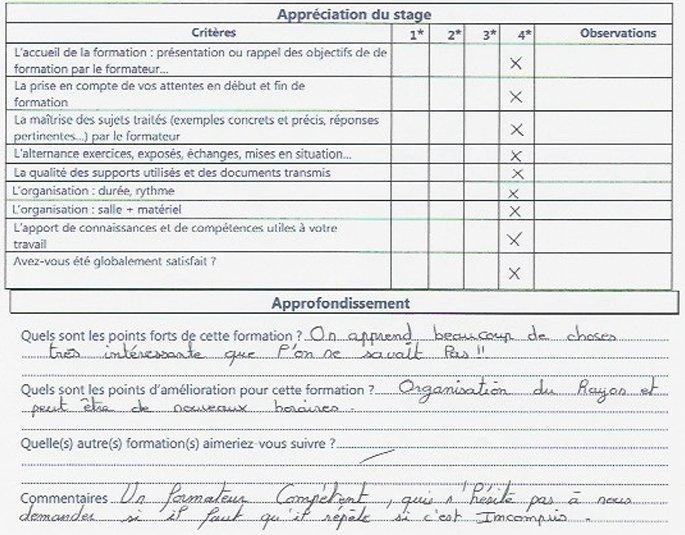 Appréciation du stage
Critères 1* 2* 3* 4* Observations
L'accueil de la formation : présentation ou rappel des objectifs de de
formation par le formateur... X
La prise en compte de vos attentes en début et fin de
formation X
La maîtrise des sujets traités (exemples concrets et précis, réponses
pertinentes...) par le formateur X
L'alternance exercices, exposés, échanges, mises en situation... X
La qualité des supports utilisés et des documents transmis X
L'organisation : durée, rythme X
L'organisation : salle + matériel X
L'apport de connaissances et de compétences utiles à votre
travail X
Avez-vous été globalement satisfait ? X
Approfondissement
Quels sont les points forts de cette formation ? On apprend beaucoup de choses
très intéressante que l'on ne savait Pas !!
Quels sont les points d'amélioration pour cette formation ? Organisation du Rayon et
peut être de nouveaux horaires.
Quelle(s) autre(s) formation(s) aimeriez-vous suivre ?
Commentaires Un formateur Compétent, quis n'hésite pas à nous
demander si il faut qu'il répète si c'est Imcompris.